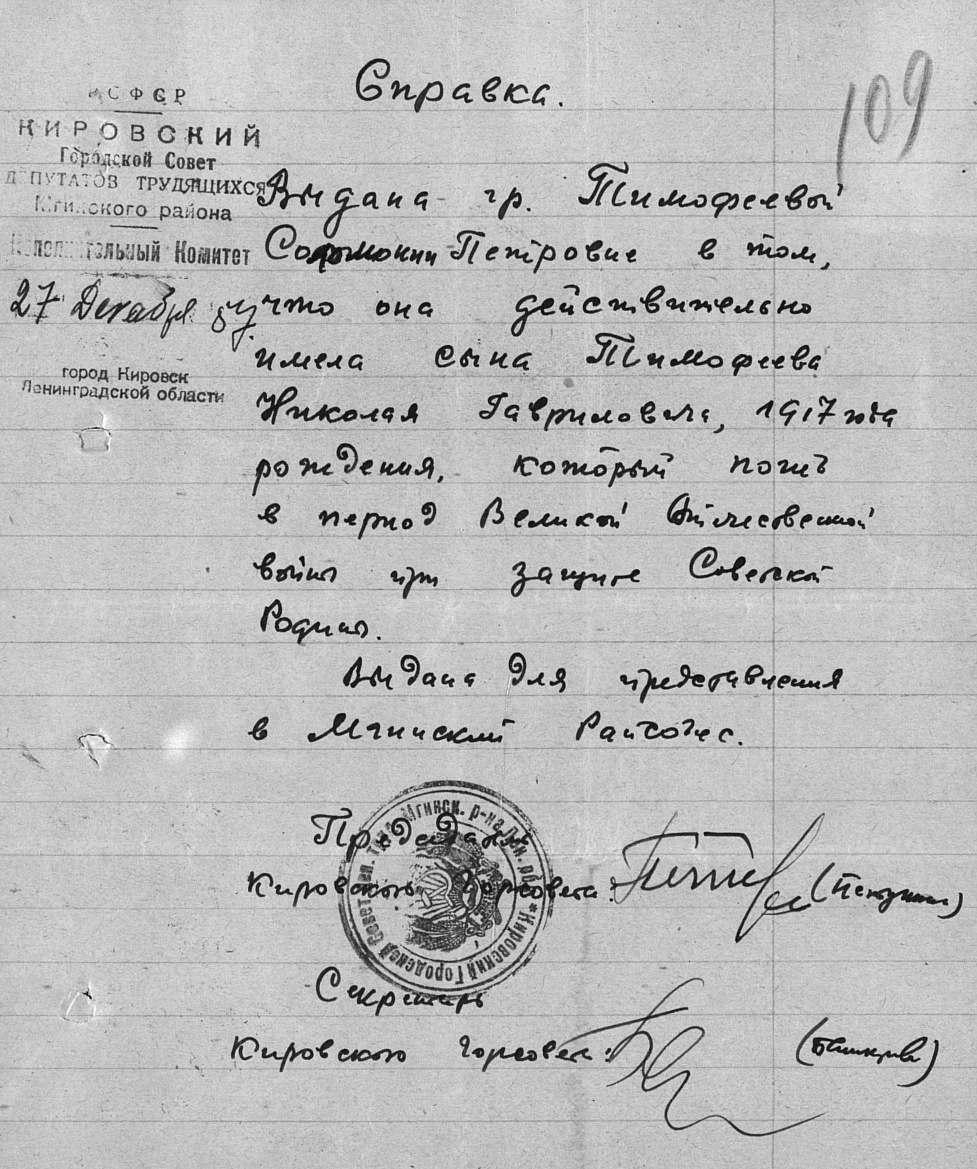 Справка.
109
РСФСР
КИРОВСКИЙ
Городской Совет
ДЕПУТАТОВ ТРУДЯЩИХСЯ
Мгинского района
Исполнительный Комитет
27 Декабря
город Кировск
Ленинградской области
Выдана гр. Тимофеевой
Соломонии Петровне в том,
что она действительно
имела сына Тимофеева
Николая Гавриловича, 1917 года
рождения, который погиб
в период Великой Отечественной
войны при защите Советской
Родины.
Выдана для представления
в Мгинский Райсобес.
Председатель
Кировского Горсовета:
Секретарь
Кировского Горсовета:
Кировский Городской Совет деп. труд. Мгинск. р-на Лен. обл. *